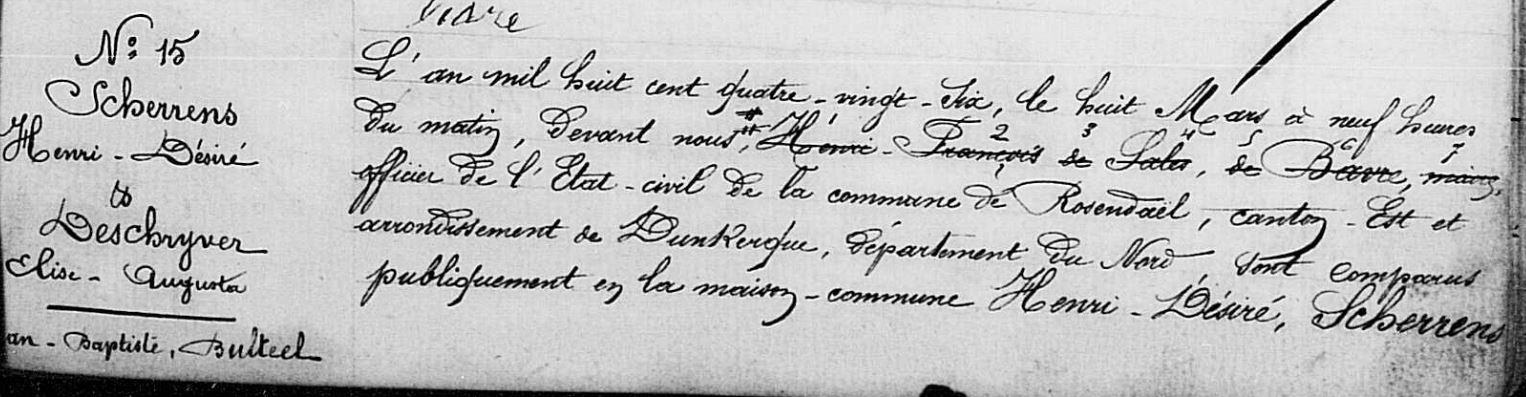 N° 15
Scherrens
Henri - Désiré
&
Deschryver
Elise - Augusta
an - Baptiste, Bulteel
L'an mil huit cent quatre-vingt-six, le huit Mars à neuf heures
du matin, devant nous, # Henri - François de Sales, de Bavre, maire,
officier de l'Etat-civil de la commune de Rosendaël, canton - Est et
arrondissement de Dunkerque, département du Nord, sont comparus
publiquement en la maison-commune Henri - Désiré, Scherrens